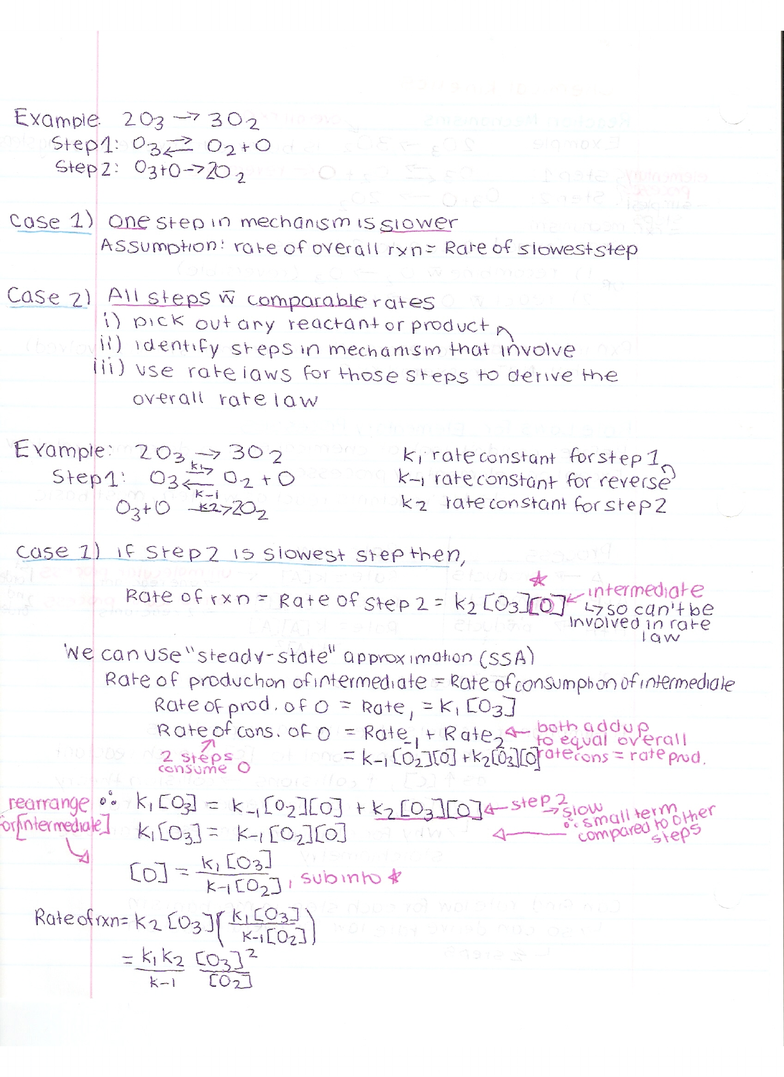 Example: 2O3 → 3O2
Step1: O3 ⇄ O2 + O
Step2: O3+O→2O2
Case 1) One step in mechanism is slower
Assumption: rate of overall rxn = Rate of slowest step
Case 2) All steps w̄ comparable rates
i) pick out any reactant or product
ii) identify steps in mechanism that involve
iii) use rate laws for those steps to derive the
overall rate law
Example: 2O3 → 3O2
k1 rate constant for step 1
Step1: O3 ⇄ O2 + O
k1
k-1
k-1 rate constant for reverse
O3+O k2→ 2O2
k2 rate constant for step 2
Case 1) if Step 2 is slowest step then,
Rate of rxn = Rate of step 2 = k2[O3][O]
* ← intermediate
↳ so can't be
involved in rate
law
We can use "steady-state" approximation (SSA)
Rate of production of intermediate = Rate of consumption of intermediate
Rate of prod. of O = Rate1 = k1[O3]
Rate of cons. of O = Rate-1 + Rate2
= k-1[O2][O] + k2[O3][O]
← both add up
to equal overall
rate cons = rate prod.
2 steps
consume O
rearrange
for [intermediate]
∴ k1[O3] = k-1[O2][O] + k2[O3][O]
← step 2
→ slow
∴ small term
compared to other
steps
k1[O3] = k-1[O2][O]
[O] = k1[O3] / k-1[O2], sub into *
Rate of rxn = k2[O3](k1[O3] / k-1[O2])
= k1k2 / k-1 [O3]² / [O2]